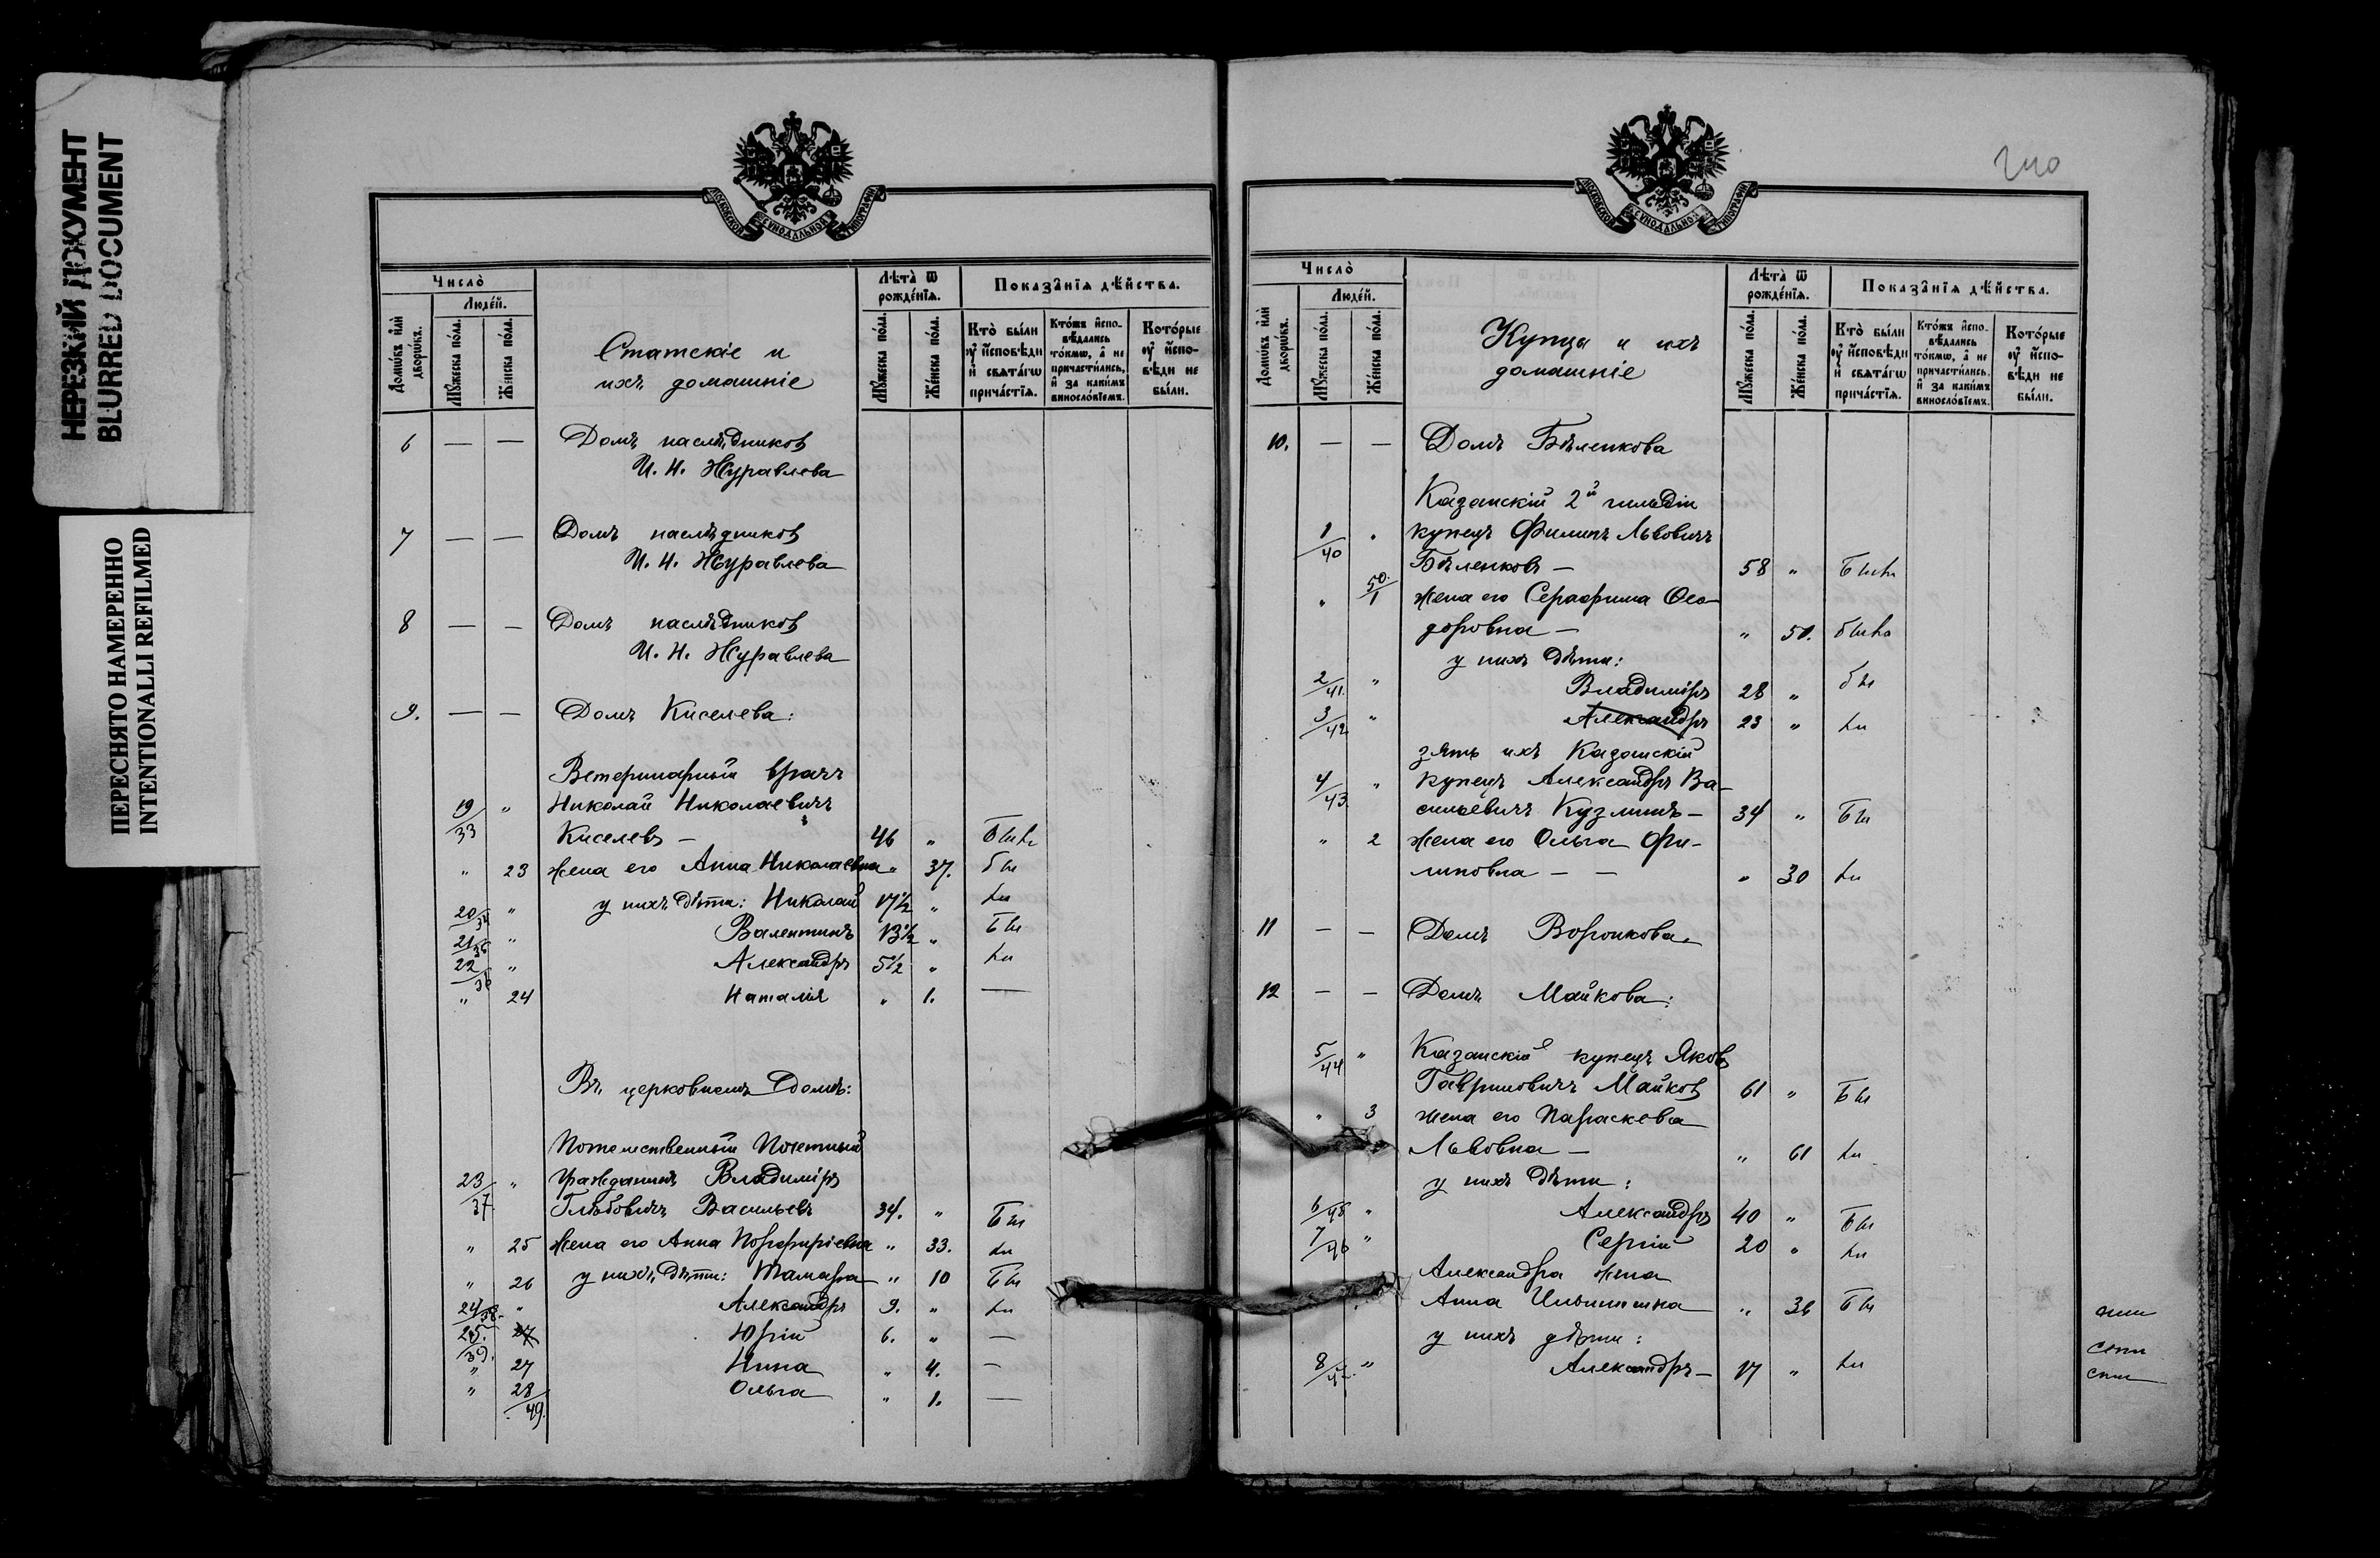 НЕРЕЗКИЙ ДОКУМЕНТ
BLURRED DOCUMENT
ПЕРЕСНЯТО НАМЕРЕННО
INTENTIONALLI REFILMED
МОСКОВСКОЙ СѴНОДАЛЬНОЙ ТИПОГРАФІИ
Число̀
Людéй.
Домѡ́въ и҆лѝ дворѡ́въ.
Мꙋ́жеска по́ла.
Же́нска по́ла.
Статскіе и
ихъ домашніе
Лѣта̀ ѿ рожде́нїѧ.
Мꙋ́жеска по́ла.
Же́нска по́ла.
Показа̑нїѧ дѣ́йства.
Кто̀ бы́ли ᲂу҆ и҆сповѣ́ди и҆ свѧта́гѡ прича́стїѧ.
Кто́жъ и҆спо-вѣ́дались то́кмѡ, а҆ не причасти́лись, и҆ за каки́мъ виносло́вїемъ.
Кото́рые ᲂу҆ и҆спо-вѣди не бы́ли.
6 — — Домъ наслѣдниковъ
И. Н. Журавлева
7 — — Домъ наслѣдниковъ
И. Н. Журавлева
8 — — Домъ наслѣдниковъ
И. Н. Журавлева
9. — — Домъ Киселева:
Ветеринарный врачъ
19/33 " Николай Николаевичъ
Киселевъ — 46 "
" 23 жена его Анна Николаевна " 37.
20/34 " у нихъ дѣти: Николай 17½ "
21/35 " Валентинъ 13½ "
22/36 " Александръ 5½ "
" 24 Наталія " 1. —
Въ церковномъ домѣ:
Потомственный Почетный
23/37 " гражданинъ Владиміръ
Глѣбовичъ Васильевъ 34. "
" 25 жена его Анна Порфиріевна " 33.
" 26 у нихъ дѣти: Тамара " 10
24/38 " Александръ 9. "
25./39. 27 Юрій 6. " —
" 27 Нина " 4. —
" 28/49. Ольга " 1. —
240
МОСКОВСКОЙ СѴНОДАЛЬНОЙ ТИПОГРАФІИ
Число̀
Людéй.
Домѡ́въ и҆лѝ дворѡ́въ.
Мꙋ́жеска по́ла.
Же́нска по́ла.
Купцы и ихъ
домашніе
Лѣта̀ ѿ рожде́нїѧ.
Мꙋ́жеска по́ла.
Же́нска по́ла.
Показа̑нїѧ дѣ́йства.
Кто̀ бы́ли ᲂу҆ и҆сповѣ́ди и҆ свѧта́гѡ прича́стїѧ.
Кто́жъ и҆спо-вѣ́дались то́кмѡ, а҆ не причасти́лись, и҆ за каки́мъ виносло́вїемъ.
Кото́рые ᲂу҆ и҆спо-вѣди не бы́ли.
10. — — Домъ Бѣленкова
Казанскій 2й гильдіи
1/40 " купецъ Филипъ Львовичъ
Бѣленковъ — 58 "
" 50/1 жена его Серафима Ѳео-
доровна — " 50.
у нихъ дѣти:
2/41. " Владиміръ 28 "
3/42 " Александръ 23 "
зять ихъ Казанскій
4/43. " купецъ Александръ Ва-
сильевичъ Кузминъ — 34 "
" 2 жена его Ольга Фи-
липовна — — " 30
11 — — Домъ Воронкова.
12 — — Домъ Майкова:
5/44 " Казанскій купецъ Яковъ
Гавриловичъ Майковъ 61 "
" 3 жена его Параскева
Львовна — " 61
у нихъ дѣти:
6/45 " Александръ 40 "
7/46 " Сергій 20 "
Александра жена
Анна Ильинишна " 36
у нихъ дѣти:
8 " Александръ — 17 "